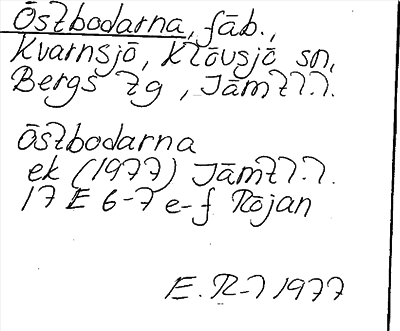 Östbodarna, fäb.,
Kvarnsjö, Klövsjö sn,
Bergs tg, Jämtl.
Östbodarna
ek (1977) Jämtl.
17 E 6-7 e-f Röjan
E. R-l 1977